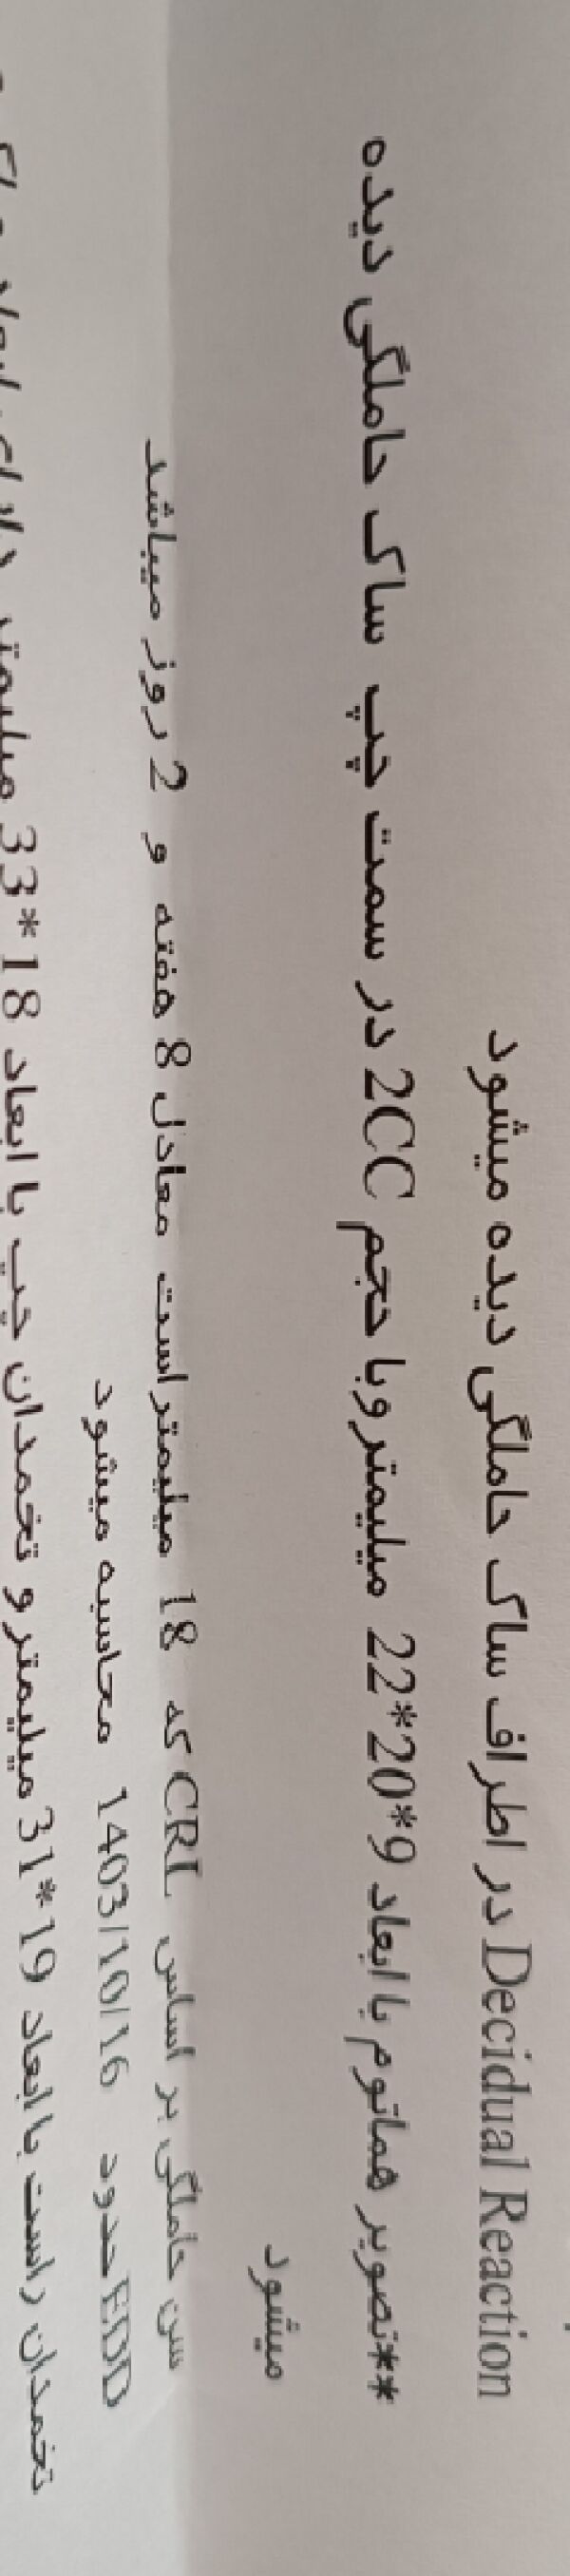 Decidual Reaction در اطراف ساک حاملگی دیده میشود
**تصویر هماتوم با ابعاد 9*20*22 میلیمتر وبا حجم 2CC در سمت چپ ساک حاملگی دیده
میشود
سن حاملگی بر اساس CRL که 18 میلیمتر است معادل 8 هفته و 2 روز میباشد
EDD حدود 1403/10/16 محاسبه میشود
تخمدان راست با ابعاد 19*31 میلیمتر و تخمدان چپ با ابعاد 18*33 میلیمتر